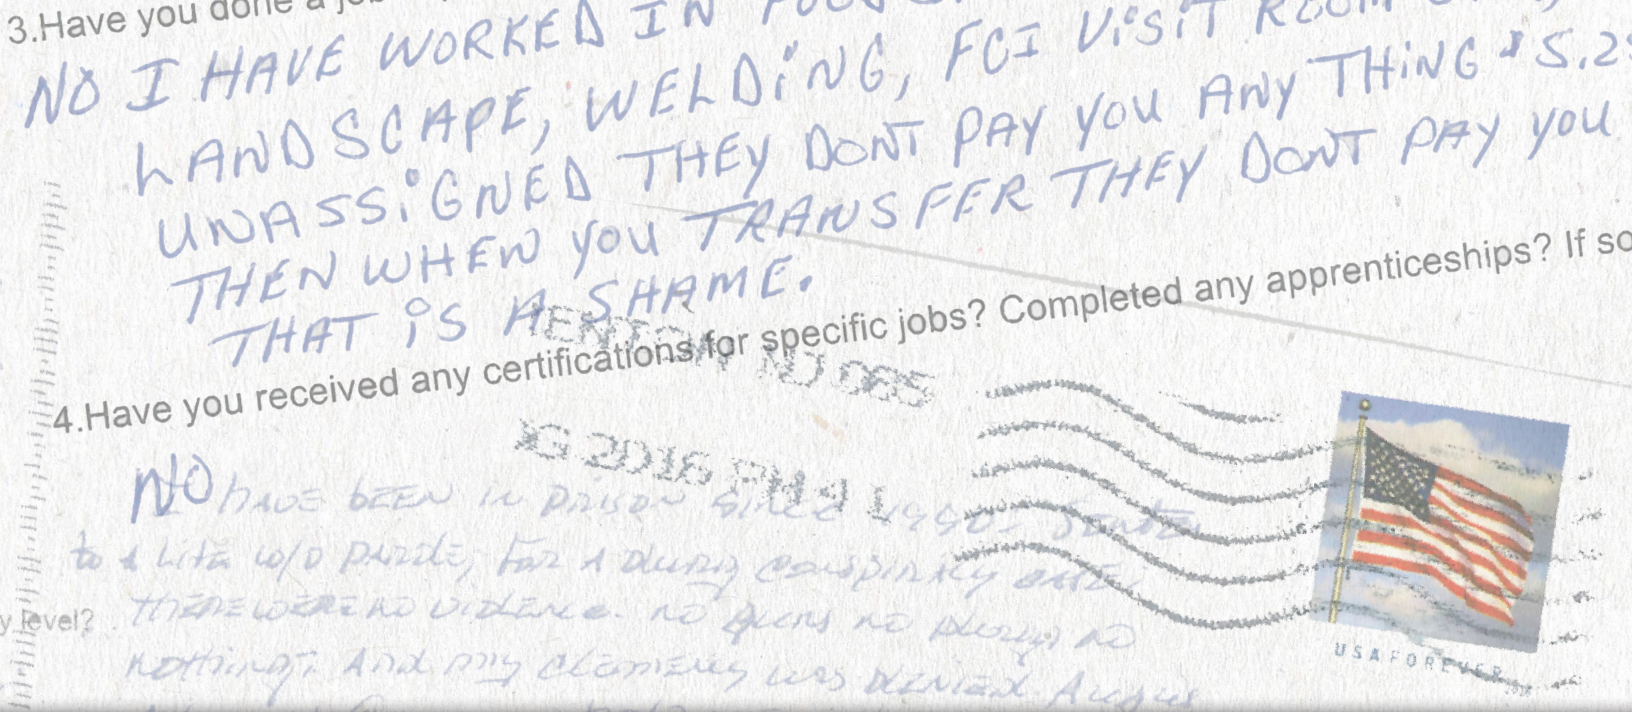 3.Have you done a
NO I HAVE WORKED IN
LANDSCAPE, WELDING, FCI VISIT ROOM
UNASSIGNED THEY DONT PAY YOU ANY THING $5.2
THEN WHEN YOU TRANSFER THEY DONT PAY YOU
THAT IS A SHAME.
4.Have you received any certifications for specific jobs? Completed any apprenticeships? If so
ENTON NJ 085
G 2016 PM 9 L
NO
I have been in prison since 1990. Sentec
to a Life w/o parole, for a drug conspiracy case,
there were no violence. no guns no drugs no
y level?
nothing. And my clemency was denied Augus
USA FOREVER